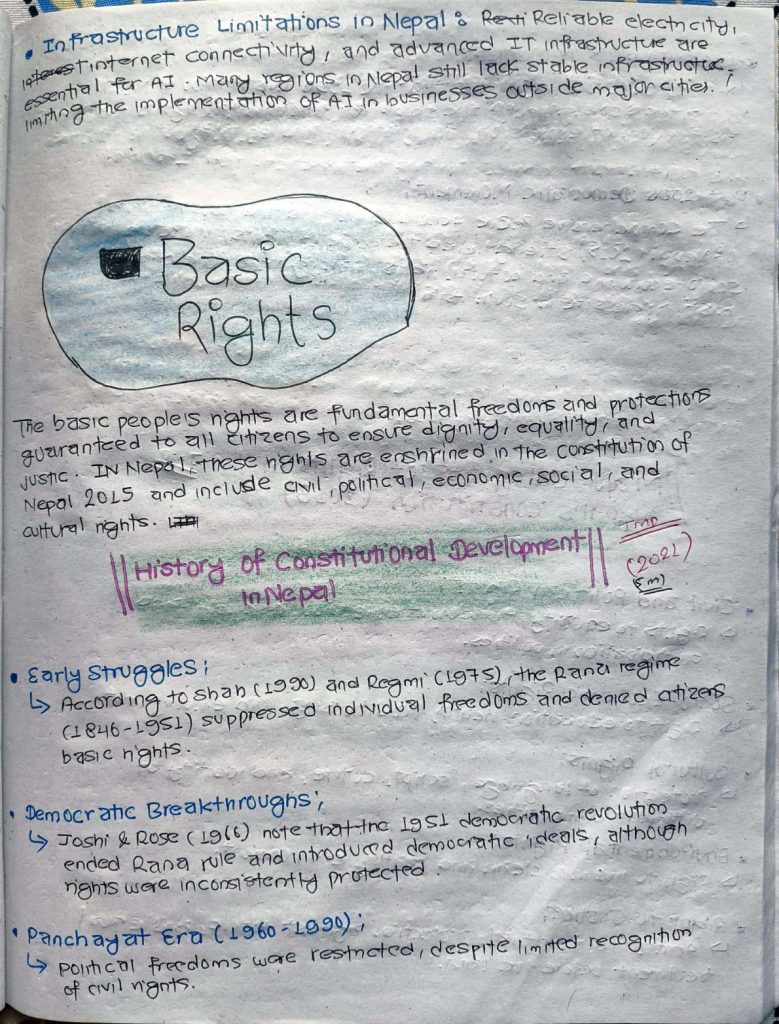 • Infrastructure Limitations in Nepal : Reliable electricity,
internet connectivity, and advanced IT infrastructure are
essential for AI. Many regions in Nepal still lack stable infrastructure,
limiting the implementation of AI in businesses outside major cities.
Basic
Rights
The basic people's rights are fundamental freedoms and protections
guaranteed to all citizens to ensure dignity, equality, and
justic. IN Nepal, these rights are enshrined in the constitution of
Nepal 2015 and include civil, political, economic, social, and
cultural rights.
History of Constitutional Development
in Nepal
Imp
(2021)
(5m)
• Early Struggles;
↳ According to Shah (1990) and Regmi (1975), the Rana regime
(1846-1951) suppressed individual freedoms and denied citizens
basic rights.
• Democratic Breakthroughs;
↳ Joshi & Rose (1966) note that the 1951 democratic revolution
ended Rana rule and introduced democratic ideals, although
rights were inconsistently protected.
• Panchayat Era (1960-1990);
↳ political freedoms were restricted, despite limited recognition
of civil rights.